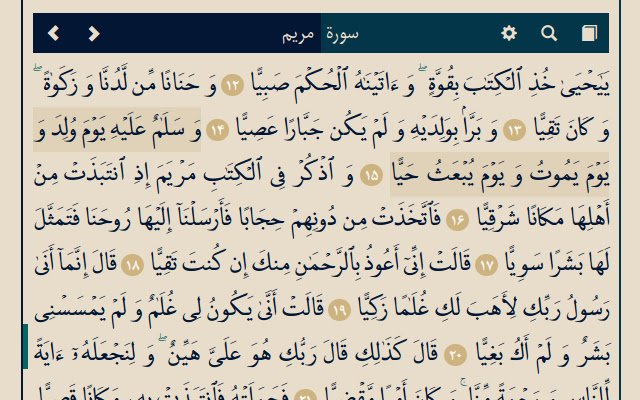 سورة مريم
يَٰيَحْيَىٰ خُذِ ٱلْكِتَٰبَ بِقُوَّةٍ ۖ وَ ءَاتَيْنَٰهُ ٱلْحُكْمَ صَبِيًّا ١٢ وَ حَنَانًا مِّن لَّدُنَّا وَ زَكَوٰةً ۖ
وَ كَانَ تَقِيًّا ١٣ وَ بَرًّۢا بِوَٰلِدَيْهِ وَ لَمْ يَكُن جَبَّارًا عَصِيًّا ١۴ وَ سَلَٰمٌ عَلَيْهِ يَوْمَ وُلِدَ وَ
يَوْمَ يَمُوتُ وَ يَوْمَ يُبْعَثُ حَيًّا ١۵ وَ ٱذْكُرْ فِى ٱلْكِتَٰبِ مَرْيَمَ إِذِ ٱنتَبَذَتْ مِنْ
أَهْلِهَا مَكَانًا شَرْقِيًّا ١۶ فَٱتَّخَذَتْ مِن دُونِهِمْ حِجَابًا فَأَرْسَلْنَآ إِلَيْهَا رُوحَنَا فَتَمَثَّلَ
لَهَا بَشَرًا سَوِيًّا ١٧ قَالَتْ إِنِّىٓ أَعُوذُ بِٱلرَّحْمَٰنِ مِنكَ إِن كُنتَ تَقِيًّا ١٨ قَالَ إِنَّمَآ أَنَا۠
رَسُولُ رَبِّكِ لِأَهَبَ لَكِ غُلَٰمًا زَكِيًّا ١٩ قَالَتْ أَنَّىٰ يَكُونُ لِى غُلَٰمٌ وَ لَمْ يَمْسَسْنِى
بَشَرٌ وَ لَمْ أَكُ بَغِيًّا ٢٠ قَالَ كَذَٰلِكِ قَالَ رَبُّكِ هُوَ عَلَىَّ هَيِّنٌ ۖ وَ لِنَجْعَلَهُۥٓ ءَايَةً
لِّلنَّاسِ وَ رَحْمَةً مِّنَّا ۚ وَ كَانَ أَمْرًا مَّقْضِيًّا ٢١ فَحَمَلَتْهُ فَٱنتَبَذَتْ بِهِۦ مَكَانًا قَصِيًّا